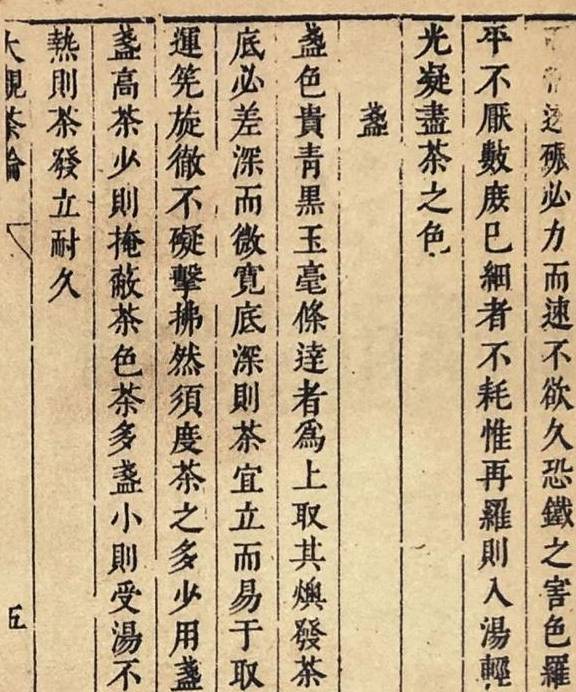 碾必力而速不欲久恐鐵之害色羅
平不厭數庻已細者不耗惟再羅則入湯輕
光凝盡茶之色
盞
盞色貴青黑玉毫條逹者為上取其燠發茶
底必差深而微寛底深則茶宜立而易于取
運筅旋徹不礙擊拂然須度茶之多少用盞
盞高茶少則掩蔽茶色茶多盞小則受湯不
熱則茶發立耐久
大觀茶論
五